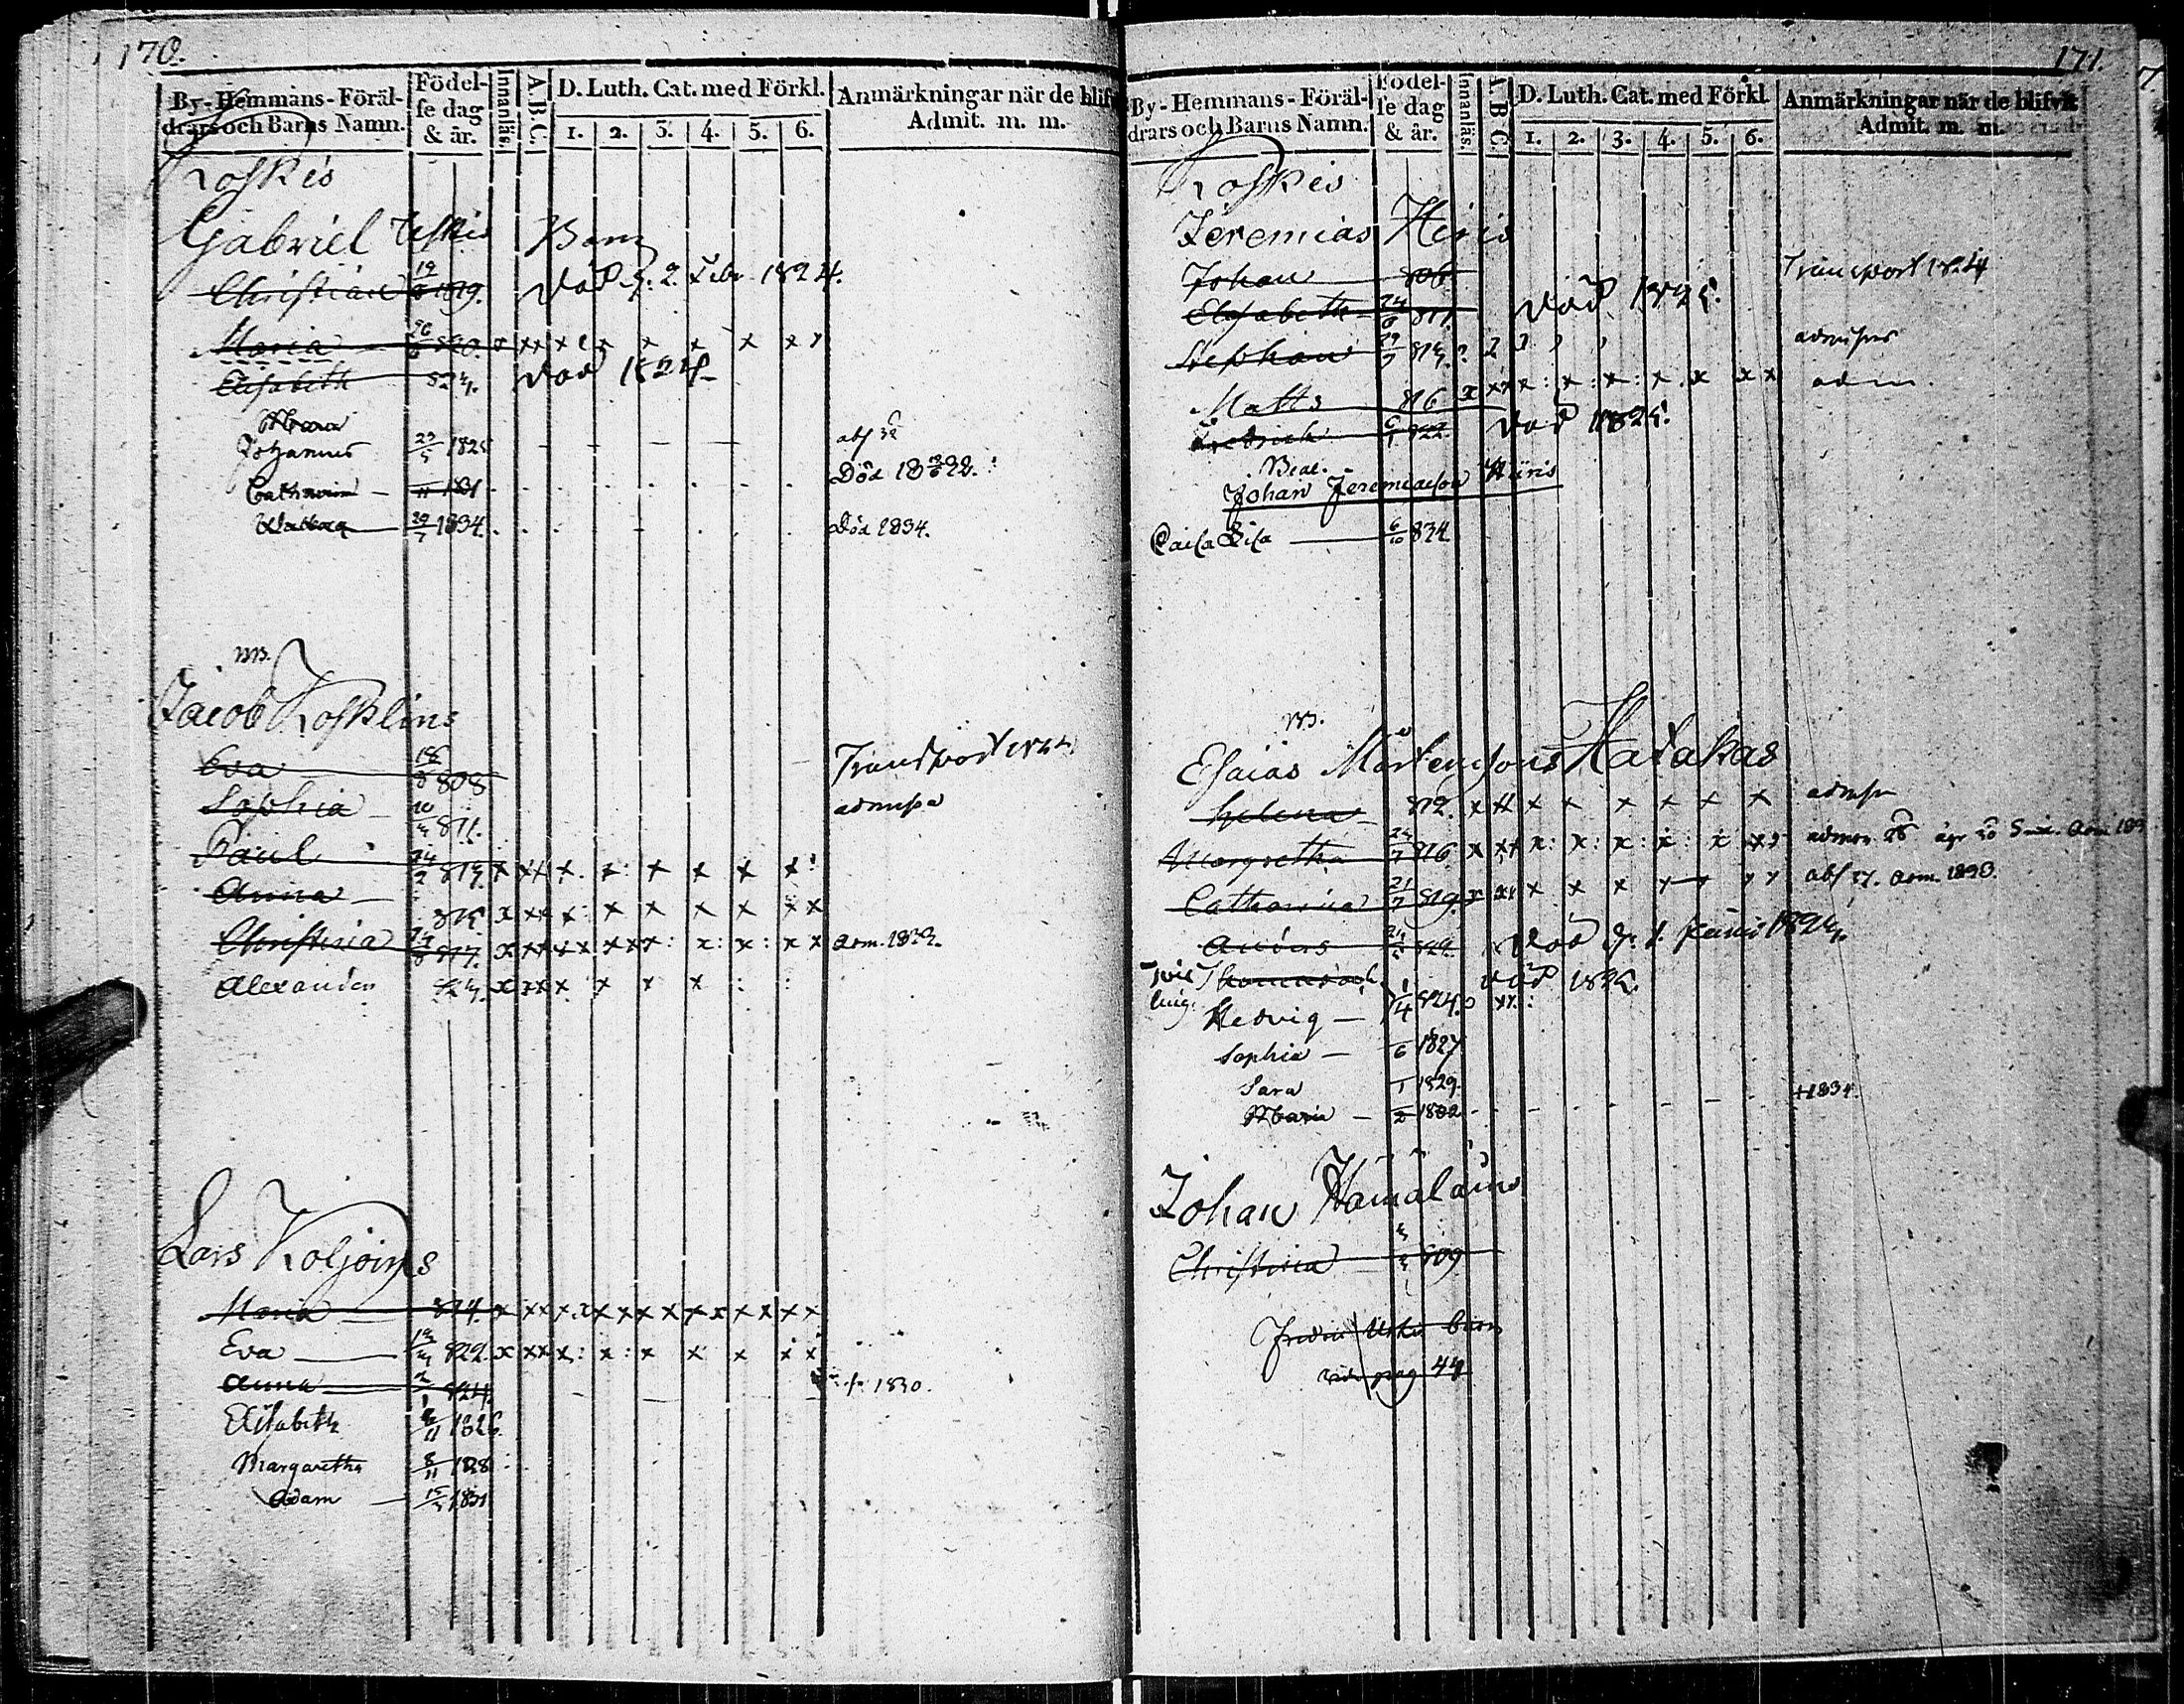 170.
By-Hemmans-Föräl-
drars och Barns Namn.
Födel-
se dag
& år.
Innanläs.
A.B.C.
D. Luth. Cat. med Förkl.
1. 2. 3. 4. 5. 6.
Anmärkningar när de blifv
Admit. m. m.
Koskis
Gabriel Barn
Christian 19 1819. död d. 2 1824.
Maria 26 820. x xx x x x x x x
Elisabeth 824. död 1824
Johannes 23/5 1825
Catharina 11 1831 Död 1832.
Walborg 29/7 1834. Död 1834.
Jacob Kosklins
Eva 18 808 Transport 1824
Sophia 10 811. admissa
Paul 24/2 813. x xx x. x: x x x x:
Anna 815. x xx x: x x x x xx
Christina 817. x xx xx xxx: x: x: x x adm. 1832.
Alexander x xx x. x x x : :
Lars Koljoins
Maria 814. x xx x.x xx xx xx xx xx
Eva 822. x xx x: x: x x x x x
Anna 2/1 824. 1830.
Elisabeth 11 1826.
Margaretha 8/11 1828
Adam 15 1831
171.
By-Hemmans-Föräl-
drars och Barns Namn.
Födel-
se dag
& år.
Innanläs.
A.B.C.
D. Luth. Cat. med Förkl
1. 2. 3. 4. 5. 6.
Anmärkningar när de blifvit
Admit. m. m.
Koskis
Jeremias Heris
Johan 806 Transport 1824
Elisabeth 24 811. död 1825.
Stephan 29/7 813. admissus
Matts 816 x xx x: x: x: x. x x x adm.
Fredrich 6/1 822. död 1825.
Johan Jeremiaison Häris
Caisa Lisa 6/10 834
Esaias Mårtensons Hatakas
Helena 812. x xx x x x x x x admissa
Margretha 24/7 816 x xx x: x: x: x: x xx
Catharina 21/7 819. x xx x x x x x x abs 37. adm. 1838.
Anders 822. död d. 1. Junii 1824.
Twil
ling. död 1825.
Hedvig 1/4 824.
Sophia 6 1827
Sara 1 1829.
Maria 2 1832 +1834.
Johan Hämäläins
Christina 809
barn
vide pag 44